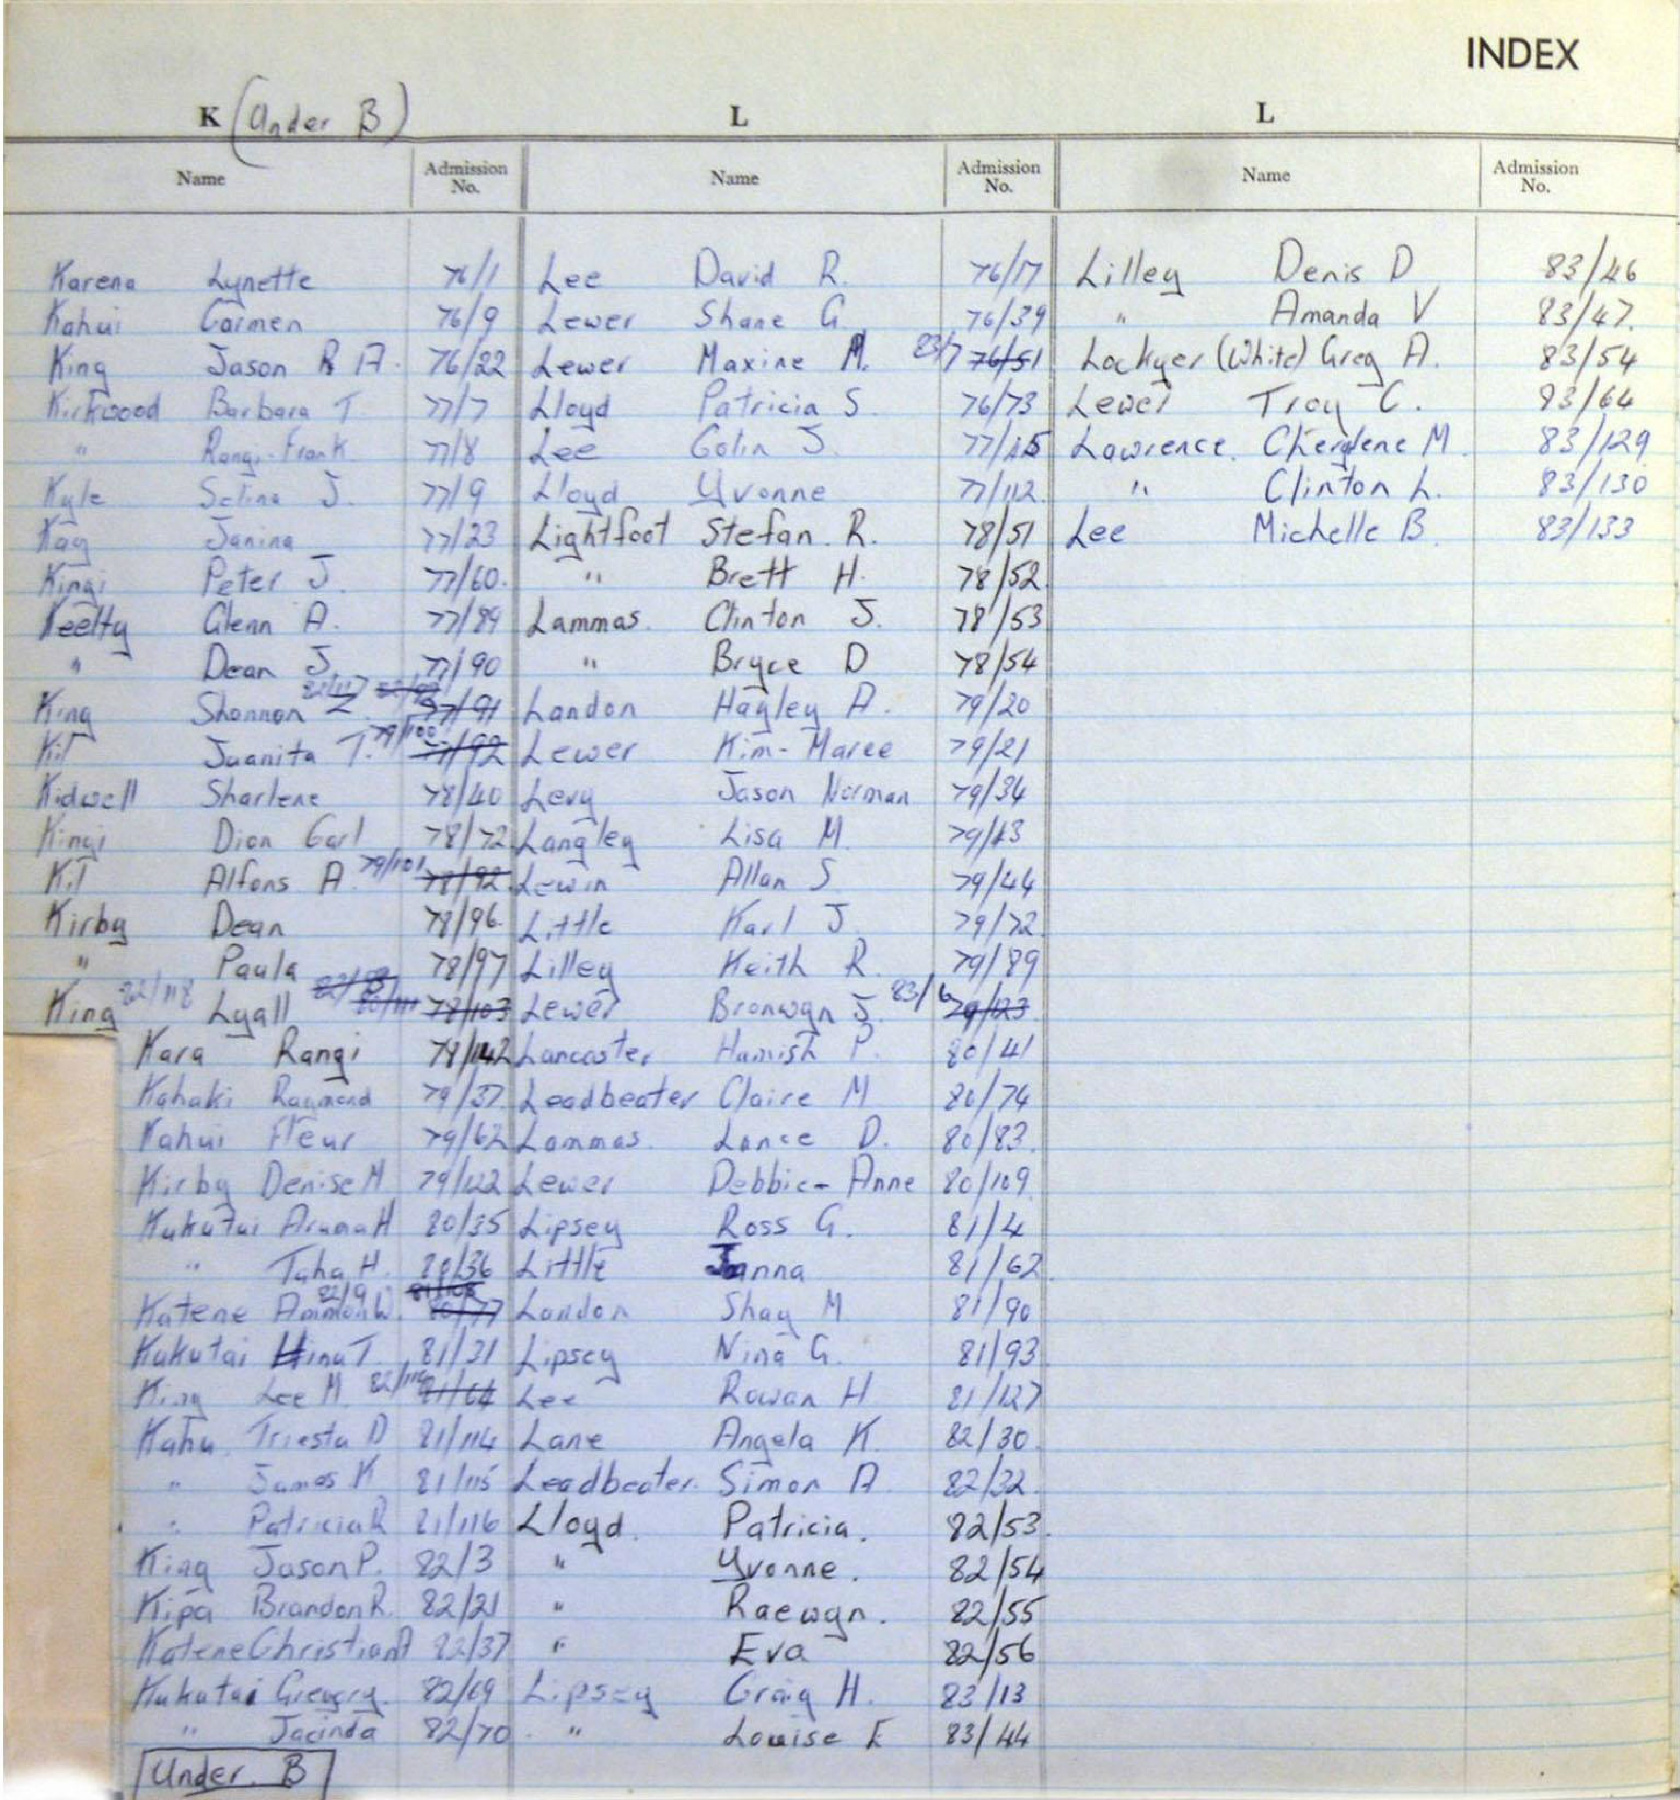 INDEX
K (Under B)
Name Admission No.
Karena Lynette 76/1
Kahui Carmen 76/9
King Jason R A. 76/22
Kirkwood Barbara T 77/7
" Rangi-Frank 77/8
Kyle Selina J. 77/9
Kay Janina 77/23
Kingi Peter J. 77/60.
Keelty Glenn A. 77/89
" Dean J. 77/90
King Shannon Z. 82/117 77/91
Kil Juanita T. 79/100 77/92
Kidwell Sharlene 78/40
Kingi Dion Carl 78/72
Kil Alfons A. 79/101 78/92
Kirby Dean 78/96
" Paula 78/97
King 82/118 Lyall 80/111 78/103
Kara Rangi 78/142
Kahaki Raymond 79/37
Kahui Fleur 79/62
Kirby Denise M 79/122
Kukutai Arama H 80/35
" Taha H. 80/36
Katene Ammon W. 82/9 80/77
Kukutai Hinu T 81/31
King Lee M. 81/64
Kahu Triesta D 81/114
" James K 81/115
" Patricia R 81/116
King Jason P. 82/3
Kipa Brandon R. 82/21
Katene Christian A 82/37
Kukutai Gregory. 82/69
" Jacinda 82/70
Under B
L
Name Admission No.
Lee David R. 76/17
Lewer Shane G. 76/39
Lewer Maxine M. 83/7 76/51
Lloyd Patricia S. 76/73
Lee Colin J.
Lloyd Yvonne 77/112
Lightfoot Stefan. R. 78/51
" Brett H. 78/52
Lammas. Clinton J. 78/53
" Bryce D 78/54
Landon Hayley A. 79/20
Lewer Kim-Maree 79/21
Levy Jason Norman 79/34
Langley Lisa M. 79/43
Lewin Allan S. 79/44
Little Karl J 79/72
Lilley Keith R. 79/89
Lewer Bronwyn J. 83/6 79/123
Lancaster Hamish P. 80/41
Leadbeater Claire M 80/74
Lammas. Lance D. 80/83.
Lewer Debbie-Anne 80/109
Lipsey Ross G. 81/4
Little Janna 81/62
Landon Shay M 81/90
Lipsey Nina G. 81/93
Lee Rowan H 81/127
Lane Angela K. 82/30
Leadbeater. Simon A 82/32.
Lloyd. Patricia. 82/53.
" Yvonne. 82/54
" Raewyn. 82/55
" Eva 82/56
Lipsey Craig H. 83/13
" Louise E 83/44
L
Name Admission No.
Lilley Denis D 83/46
" Amanda V 83/47.
Lockyer (White) Greg A. 83/54
Lewer Troy C. 83/64
Lawrence. Cherylene M. 83/129
" Clinton L. 83/130
Lee Michelle B. 83/133